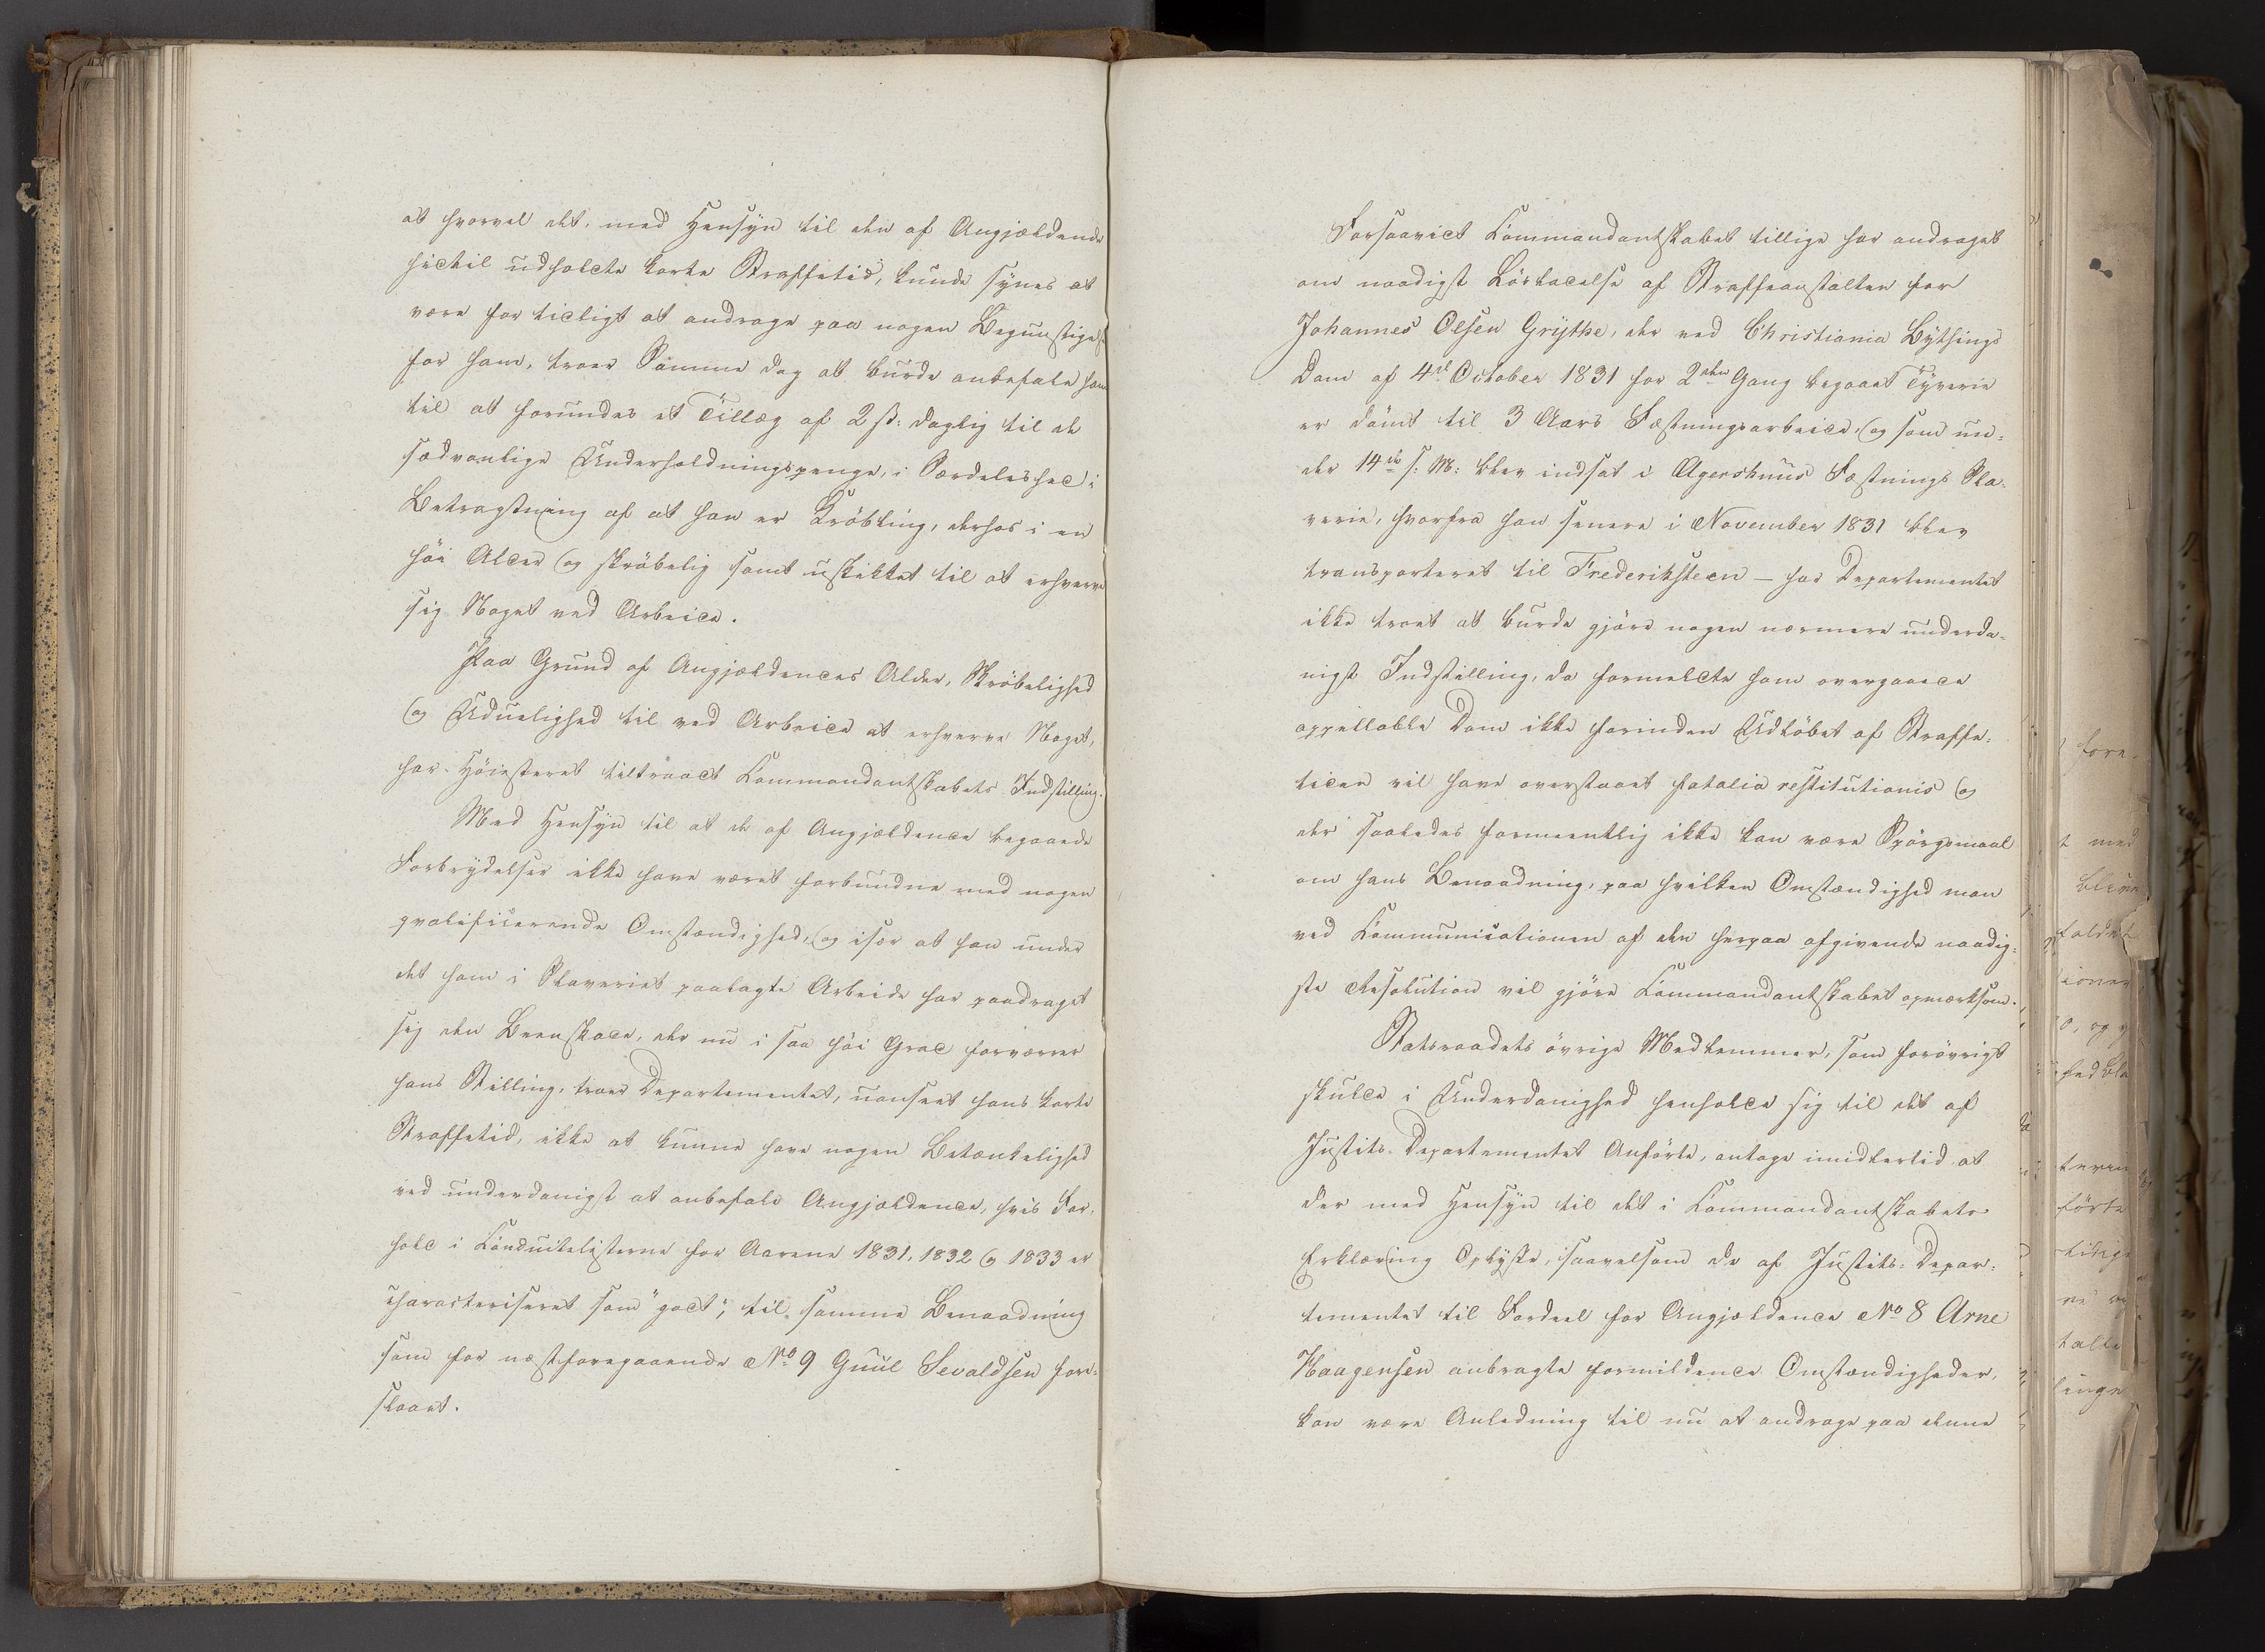 at hvorvel det, med Hensyn til den af Angjældende
hidtil udholdte korte Straffetid, kunde synes at
være for tidligt at andrage paa nogen Begunstigelse
for ham, troer Samme dog at burde anbefale ham
til at forundes et Tillæg af 2 ß: daglig til de
sædvanlige Underholdningspenge, i Særdeleshed i
Betragtning af at han er Krøbling, derhos i en
høi Alder og skrøbelig samt uskikket til at erhverve
sig Noget ved Arbeide.
Paa Grund af Angjældendes Alder, Skrøbelighed
og Uduelighed til ved Arbeide at erhverve Noget,
har Høiesteret tiltraadt Kommandantskabets Indstilling.
Med Hensyn til at de af Angjældende begaaede
Forbrydelser ikke have været forbundne med nogen
qvalificerende Omstændighed, og især at han under
det ham i Slaveriet paalagte Arbeide har paadraget
sig den Beenskade, der nu i saa høi Grad forværrer
hans Stilling, troer Departementet, uanseet hans korte
Straffetid, ikke at kunne have nogen Betænkelighed
ved underdanigst at anbefale Angjældende, hvis For-
hold i Konduitelisterne for Aarene 1831, 1832 og 1833 er
characteriseret som "godt", til samme Benaadning
som for næstforegaaende No 9 Guul Sevaldsen fore-
slaaet.
Forsaavidt Kommandantskabet tillige har andraget
om naadigst Løsladelse af Straffeanstalten for
Johannes Olsen Grythe, der ved Christiania Bythings
Dom af 4de October 1831 for 2den Gang begaaet Tyverie
er dömt til 3 Aars Fæstningsarbeide, og som un-
der 14de s: M: blev indsat i Agershuus Fæstnings Sla-
verie, hvorfra han senere i November 1831 blev
transporteret til Frederiksteen – har Departementet
ikke troet at burde gjøre nogen nærmere underda-
nigst Indstilling, da formeldte ham overgaaede
appellable Dom ikke forinden Udløbet af Straffe-
tiden vil have overstaaet fatalia restitutionis og
der saaledes formeentlig ikke kan være Spørgsmaal
om hans Benaadning, paa hvilken Omstændighed man
ved Kommunicationen af den herpaa afgivende naadig-
ste Resolution vil gjøre Kommandantskabet opmærksom.
Statsraadets øvrige Medlemmer, som forøvrigt
skulde i Underdanighed henholde sig til det af
Justits-Departementet Anførte, antage imidlertid at
der med Hensyn til det i Kommandantskabets
Erklæring Oplyste, saavelsom de af Justits-Depar-
tementet til Fordeel for Angjældende No 8 Arne
Haagensen anbragte formildende Omstændigheder,
kan være Anledning til nu at andrage paa denne